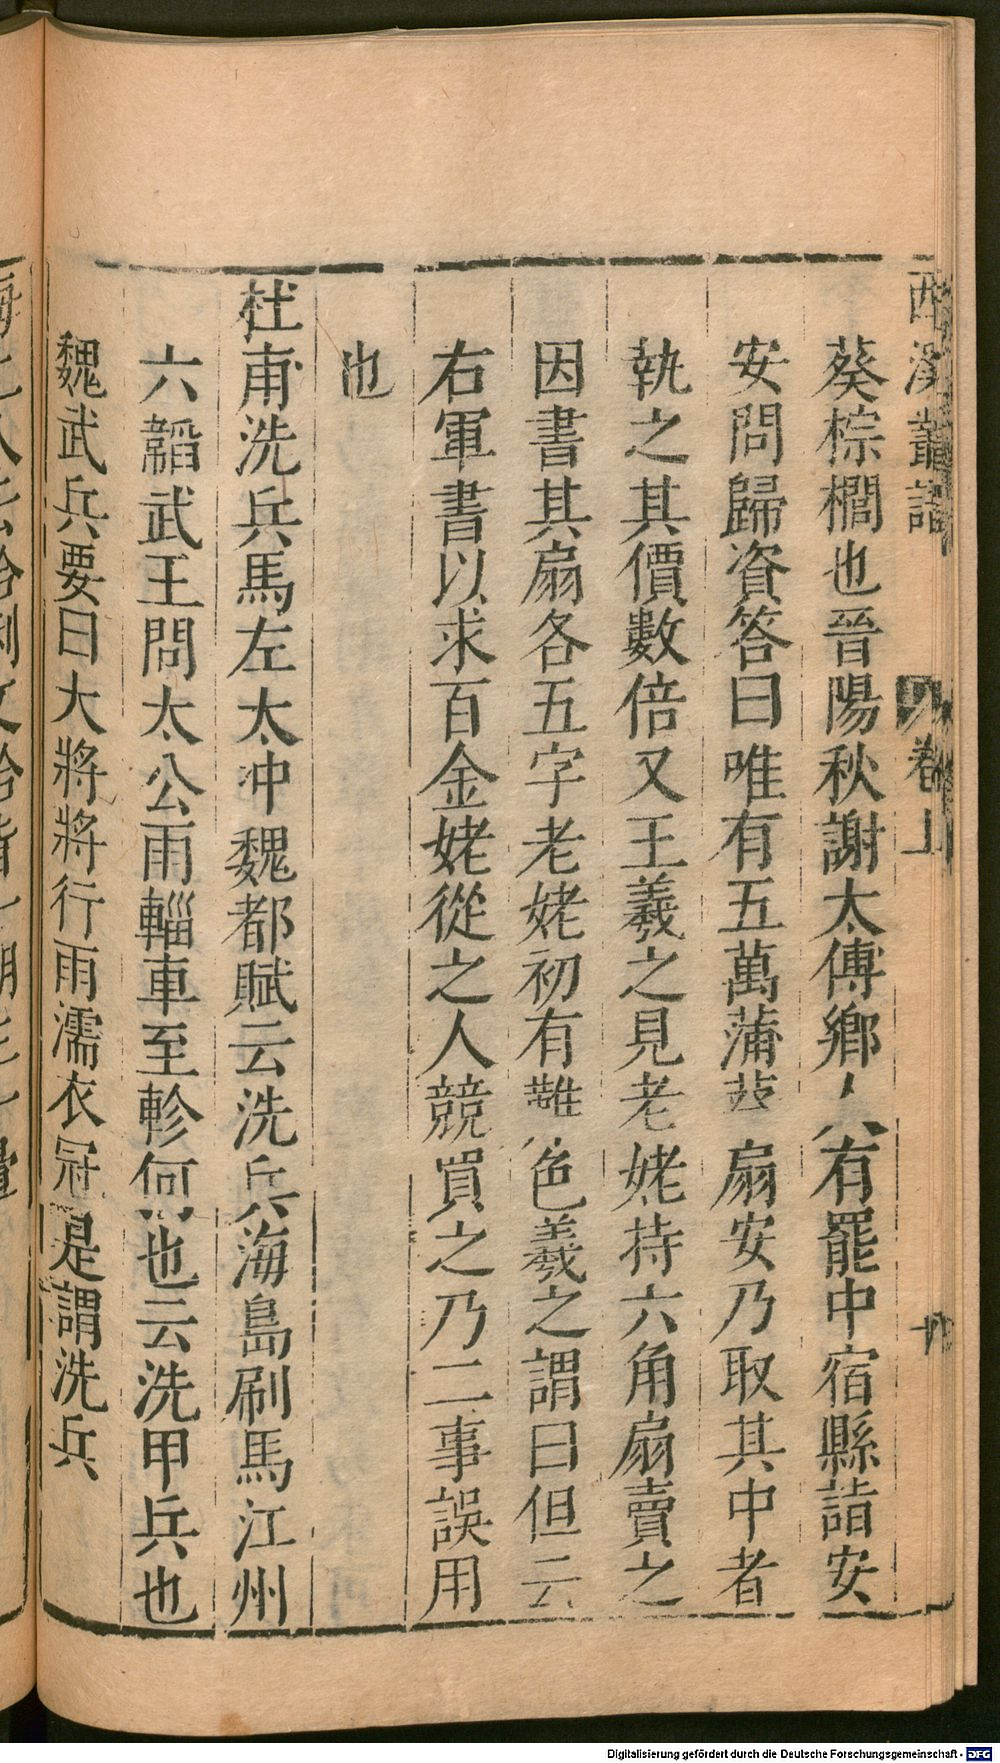 西溪叢語
卷上
葵棕櫚也晉陽秋謝太傅鄉人有罷中宿縣詣安
安問歸資答曰唯有五萬蒲葵扇安乃取其中者
執之其價數倍又王羲之見老姥持六角扇賣之
因書其扇各五字老姥初有難色羲之謂曰但云
右軍書以求百金姥從之人競買之乃二事誤用
也
杜甫洗兵馬左太冲魏都賦云洗兵海島刷馬江州
六韜武王問太公雨輜車至軫何也云洗甲兵也
魏武兵要曰大將將行雨濡衣冠是謂洗兵
Digitalisierung gefördert durch die Deutsche Forschungsgemeinschaft - DFG